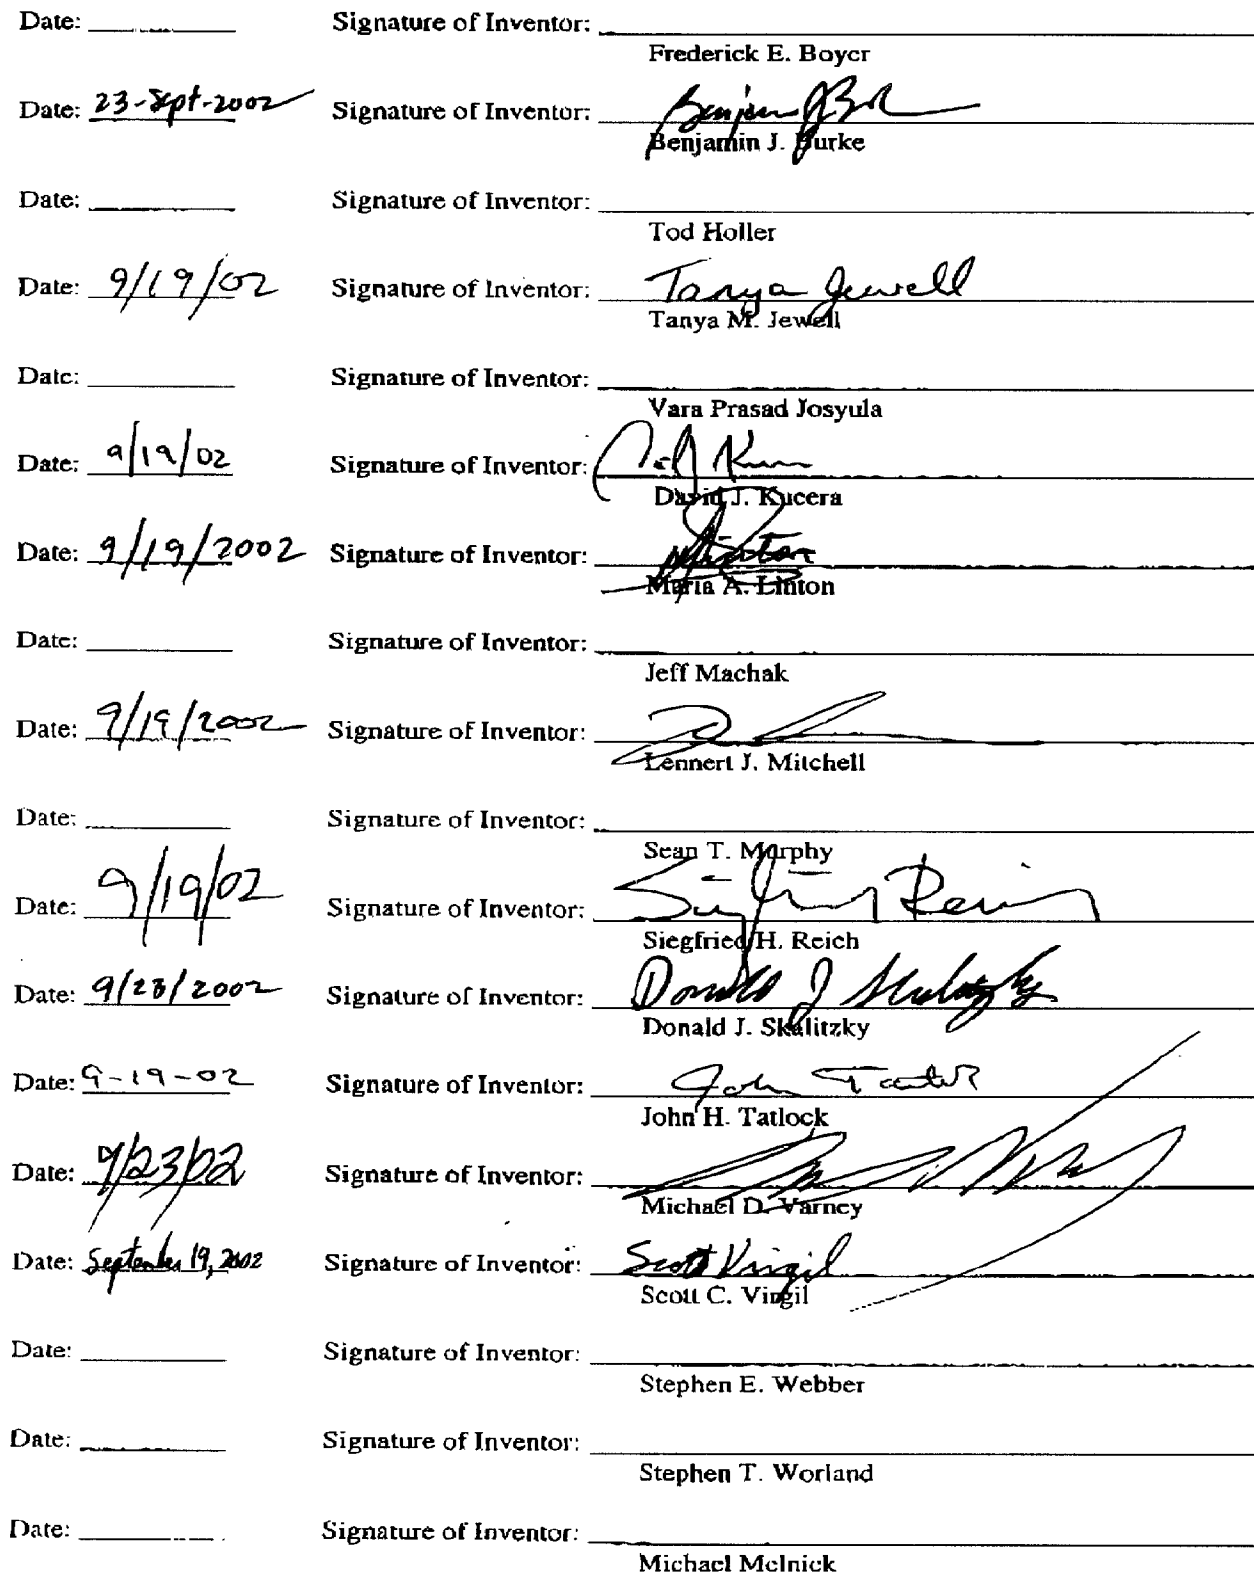 Date: Signature of Inventor:
Frederick E. Boyer
Date: 23-Sept-2002 Signature of Inventor:
Benjamin J. Burke
Date: Signature of Inventor:
Tod Holler
Date: 9/19/02 Signature of Inventor: Tanya Jewell
Tanya M. Jewell
Date: Signature of Inventor:
Vara Prasad Josyula
Date: 9/19/02 Signature of Inventor:
David J. Kucera
Date: 9/19/2002 Signature of Inventor:
Maria A. Linton
Date: Signature of Inventor:
Jeff Machak
Date: 9/19/2002 Signature of Inventor:
Lennert J. Mitchell
Date: Signature of Inventor:
Sean T. Murphy
Date: 9/19/02 Signature of Inventor:
Siegfried H. Reich
Date: 9/23/2002 Signature of Inventor: Donald J Skalitzky
Donald J. Skalitzky
Date: 9-19-02 Signature of Inventor: John Tatlock
John H. Tatlock
Date: 9/23/02 Signature of Inventor:
Michael D. Varney
Date: September 19, 2002 Signature of Inventor: Scott Virgil
Scott C. Virgil
Date: Signature of Inventor:
Stephen E. Webber
Date: Signature of Inventor:
Stephen T. Worland
Date: Signature of Inventor:
Michael Melnick